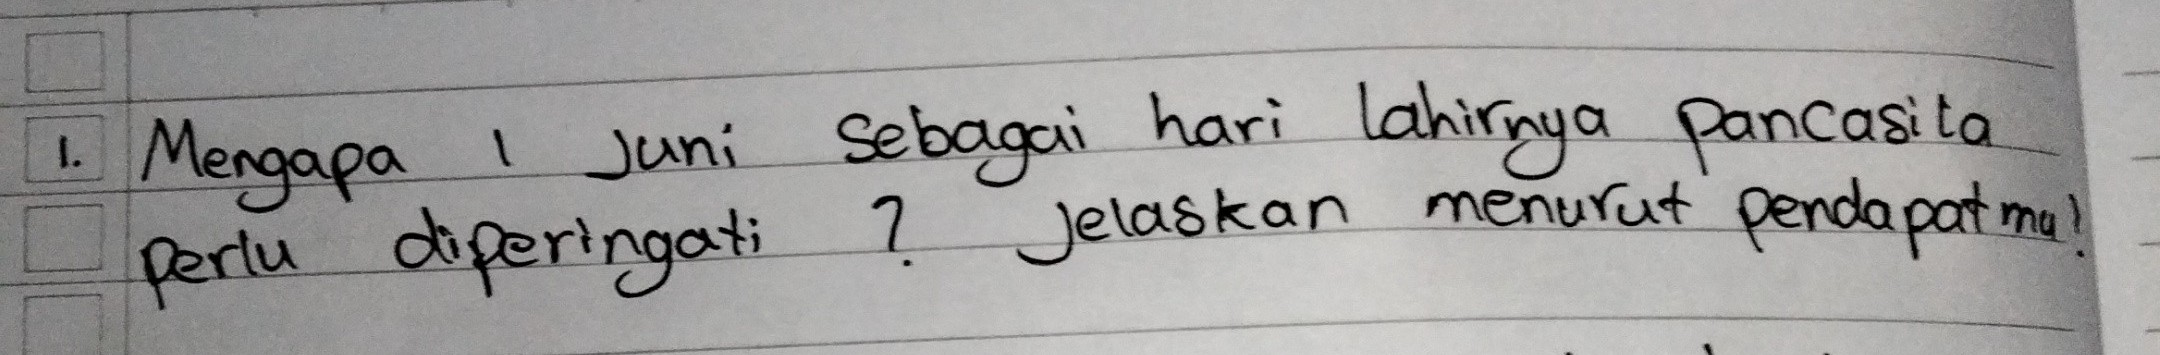 1. Mengapa 1 Juni sebagai hari lahirnya pancasila
perlu diperingati ? Jelaskan menurut pendapatmu!